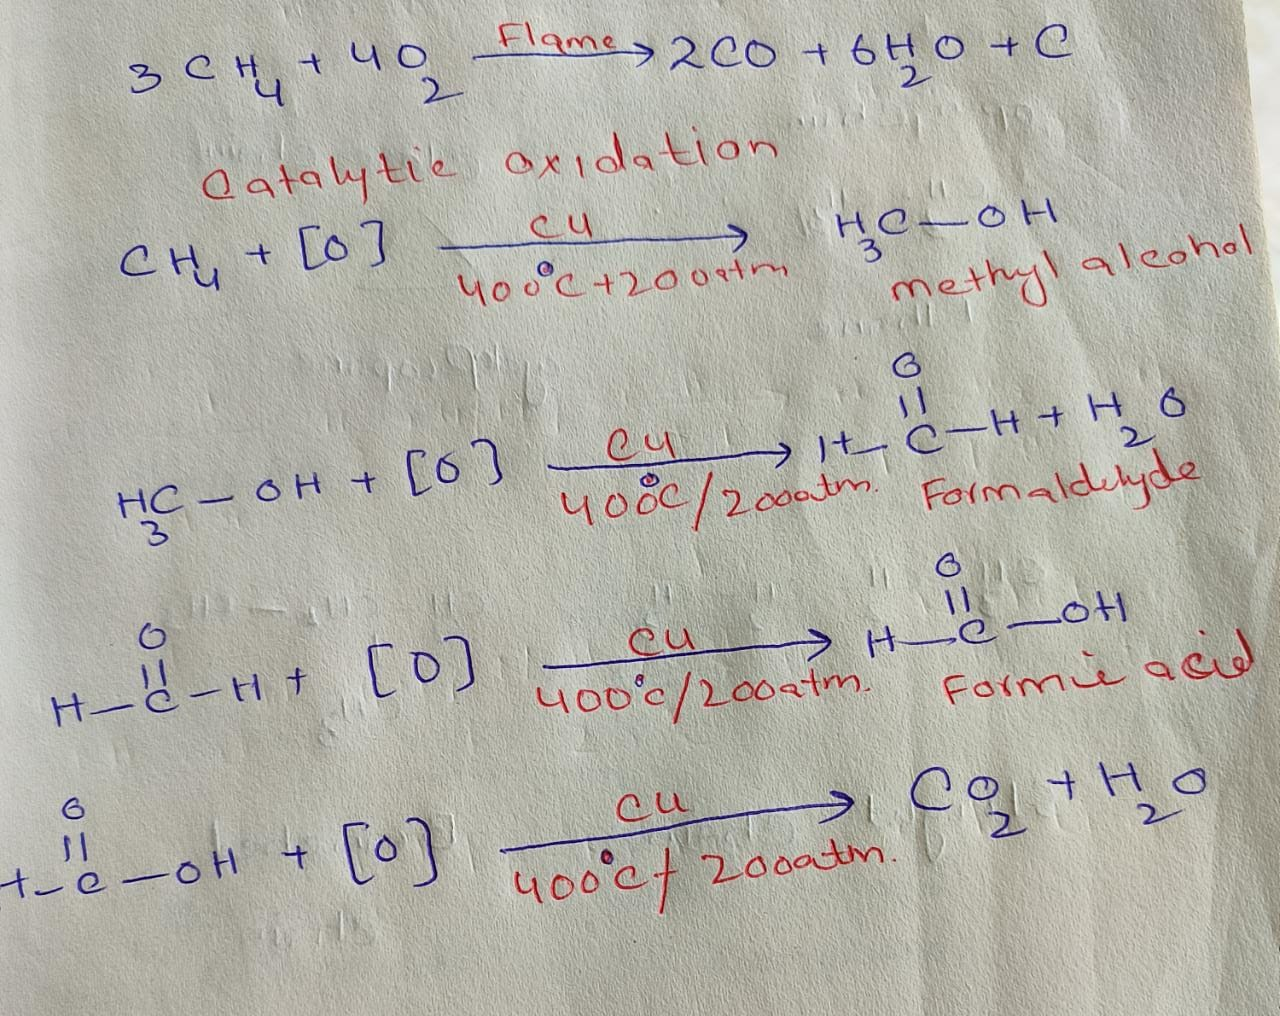 3CH₄ + 4O₂ —Flame→ 2CO + 6H₂O + C
Catalytic oxidation
CH₄ + [O] —Cu / 400°C+200atm→ H₃C—OH
methyl alcohol
H₃C—OH + [O] —Cu / 400°C/200atm.→ H—C(=O)—H + H₂O
Formaldehyde
H—C(=O)—H + [O] —Cu / 400°C/200atm.→ H—C(=O)—OH
Formic acid
H—C(=O)—OH + [O] —Cu / 400°C/200atm.→ CO₂ + H₂O